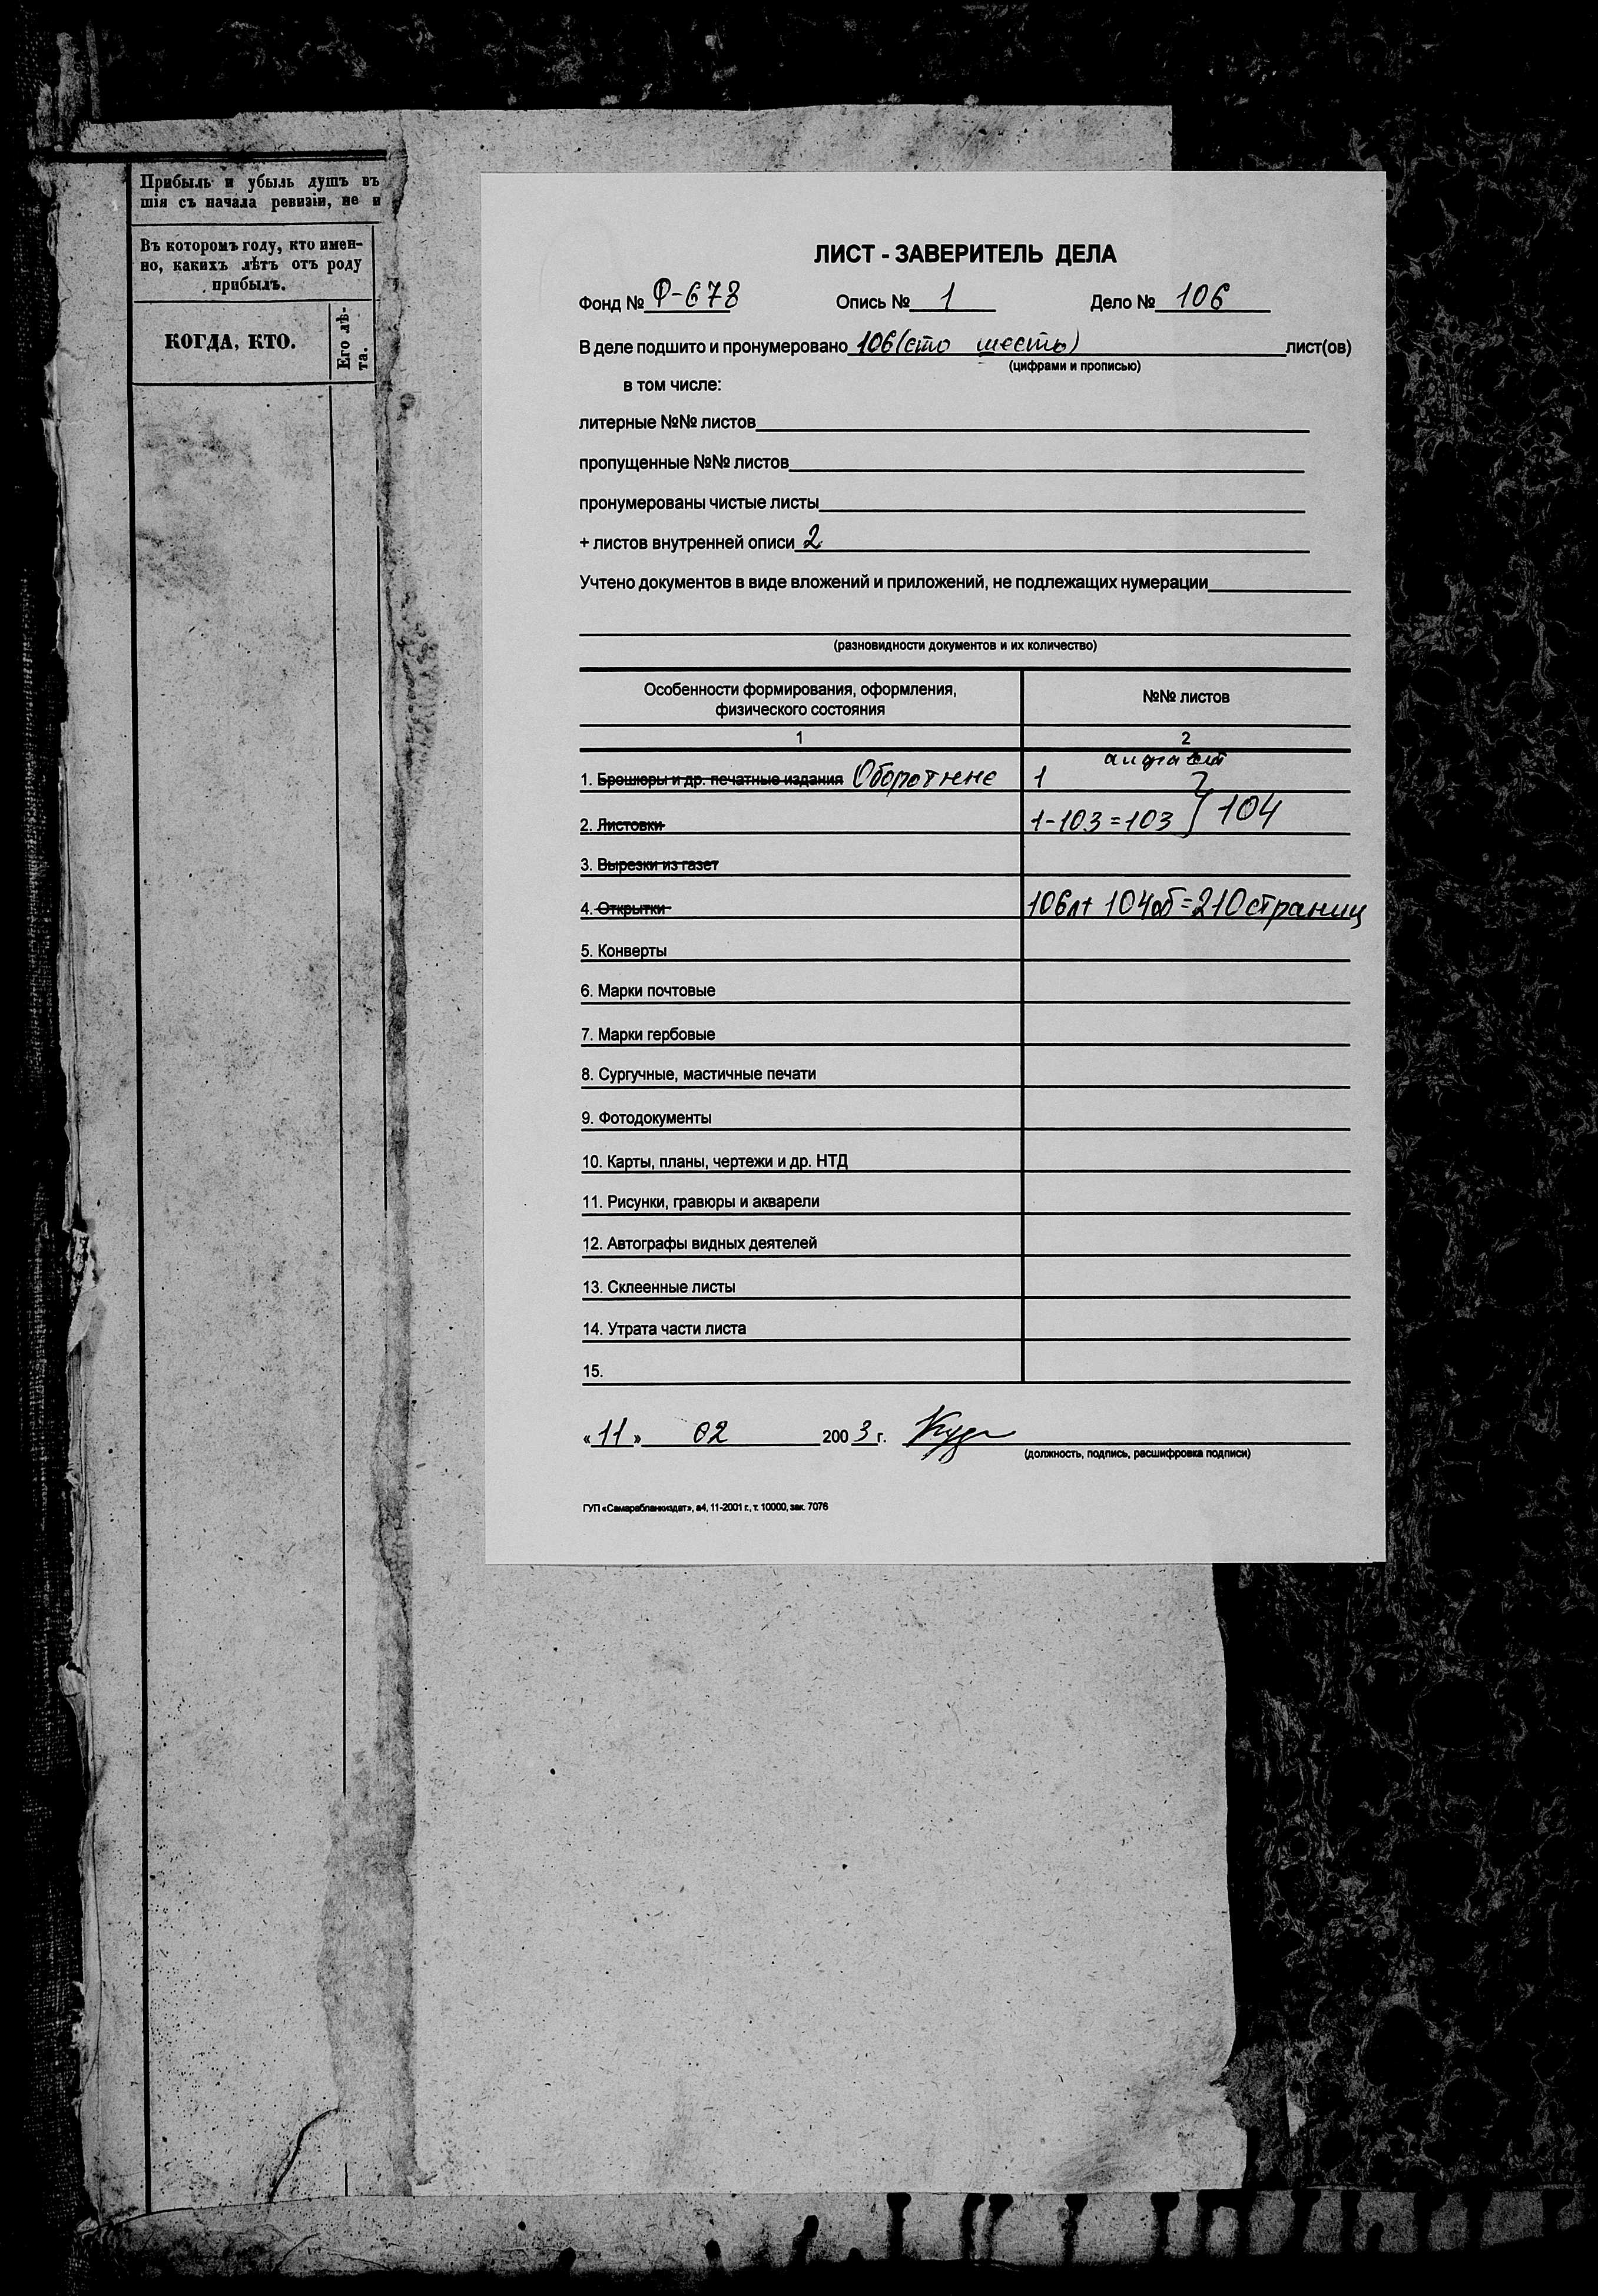 Прибыль и убыль душъ въ
шія съ начала ревизіи, не и
Въ которомъ году, кто имен-
но, какихъ лѣтъ отъ роду
прибылъ.
КОГДА, КТО.
Его лѣ-
та.
ЛИСТ - ЗАВЕРИТЕЛЬ ДЕЛА
Фонд № Ф-678 Опись № 1 Дело № 106
В деле подшито и пронумеровано 106 (сто шесть) лист(ов)
(цифрами и прописью)
в том числе:
литерные №№ листов
пропущенные №№ листов
пронумерованы чистые листы
+ листов внутренней описи 2
Учтено документов в виде вложений и приложений, не подлежащих нумерации
(разновидности документов и их количество)
Особенности формирования, оформления,
физического состояния
№№ листов
1 2
1. Брошюры и др. печатные издания Оборотные 1
2. Листовки 1-103=103 } 104
3. Вырезки из газет
4. Открытки 106л+ 104об=210страниц
5. Конверты
6. Марки почтовые
7. Марки гербовые
8. Сургучные, мастичные печати
9. Фотодокументы
10. Карты, планы, чертежи и др. НТД
11. Рисунки, гравюры и акварели
12. Автографы видных деятелей
13. Склеенные листы
14. Утрата части листа
15.
«11» 02 2003 г.
(должность, подпись, расшифровка подписи)
ГУП «Самарабланкиздат», а4, 11-2001 г., т. 10000, зак. 7076